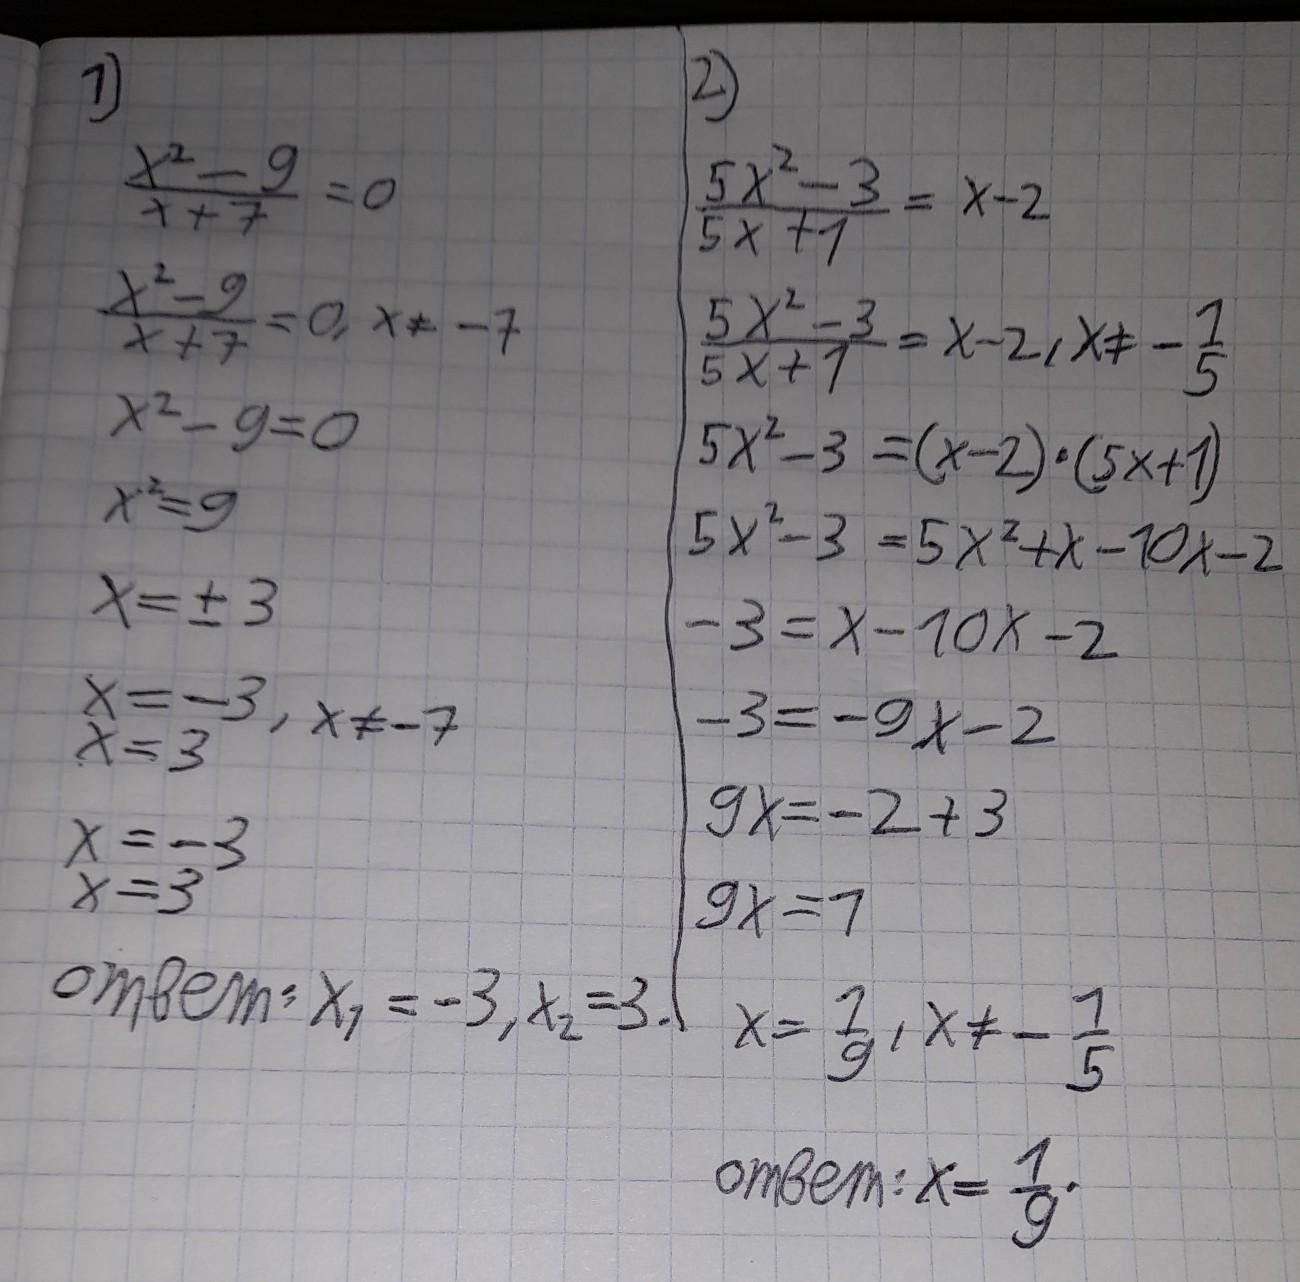 1)
x² - 9 / x + 7 = 0
x² - 9 / x + 7 = 0, x ≠ -7
x² - 9 = 0
x² = 9
x = ± 3
x = -3, x ≠ -7
x = 3
x = -3
x = 3
ответ: x₁ = -3, x₂ = 3.
2)
5x² - 3 / 5x + 1 = x - 2
5x² - 3 / 5x + 1 = x - 2, x ≠ - 1/5
5x² - 3 = (x - 2) · (5x + 1)
5x² - 3 = 5x² + x - 10x - 2
-3 = x - 10x - 2
-3 = -9x - 2
9x = -2 + 3
9x = 1
x = 1/9, x ≠ - 1/5
ответ: x = 1/9.